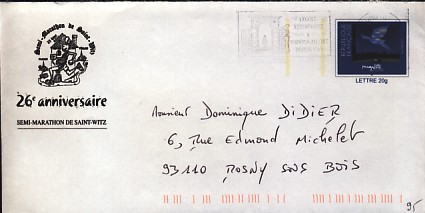 Semi-Marathon de Saint-Witz
26e anniversaire
SEMI-MARATHON DE SAINT-WITZ
LETTRE 20g
Monsieur Dominique DIDIER
6, Rue Edmond Michelet
93110 ROSNY SOUS BOIS
95